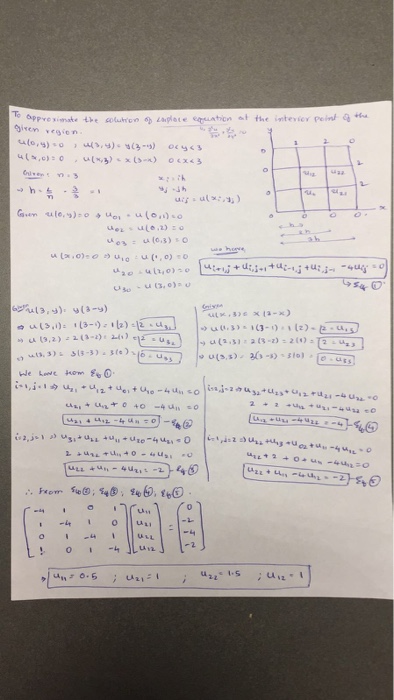 To approximate the solution of Laplace equation at the interior point of the
given region.
u(0,y)=0 , u(3,y) = y(3-y) 0<y<3
u(x,0)=0 , u(x,3) = x(3-x) 0<x<3
Given: n=3
xᵢ = ih
yⱼ = jh
uᵢ,ⱼ = u(xᵢ,yⱼ)
Given u(0,y)=0 ⇒ u₀₁ = u(0,1)=0
u₀₂ = u(0,2)=0
u₀₃ = u(0,3)=0
u(x,0)=0 ⇒ u₁₀ = u(1,0)=0
u₂₀ = u(2,0)=0
u₃₀ = u(3,0)=0
y
1 2 0
0 u₁₂ u₂₂ 2
0 u₁₁ u₂₁ 2
0 0 0 x
h
2h
3h
we have
uᵢ₊₁,ⱼ + uᵢ,ⱼ₊₁ + uᵢ₋₁,ⱼ + uᵢ,ⱼ₋₁ - 4uᵢ,ⱼ = 0
Eq ①
Given u(3,y) = y(3-y)
⇒ u(3,1) = 1(3-1) = 1(2) = 2 = u₃₁
⇒ u(3,2) = 2(3-2) = 2(1) = 2 = u₃₂
⇒ u(3,3) = 3(3-3) = 3(0) = 0 = u₃₃
Given
u(x,3) = x(3-x)
⇒ u(1,3) = 1(3-1) = 1(2) = 2 = u₁₃
⇒ u(2,3) = 2(3-2) = 2(1) = 2 = u₂₃
⇒ u(3,3) = 3(3-3) = 3(0) = 0 = u₃₃
We have from Eq ①.
i=1, j=1 ⇒ u₂₁ + u₁₂ + u₀₁ + u₁₀ - 4u₁₁ = 0
u₂₁ + u₁₂ + 0 + 0 - 4u₁₁ = 0
u₂₁ + u₁₂ - 4u₁₁ = 0 - Eq ②
i=2, j=1 ⇒ u₃₁ + u₂₂ + u₁₁ + u₂₀ - 4u₂₁ = 0
2 + u₂₂ + u₁₁ + 0 - 4u₂₁ = 0
u₂₂ + u₁₁ - 4u₂₁ = -2 - Eq ③
i=2, j=2 ⇒ u₃₂ + u₂₃ + u₁₂ + u₂₁ - 4u₂₂ = 0
2 + 2 + u₁₂ + u₂₁ - 4u₂₂ = 0
u₁₂ + u₂₁ - 4u₂₂ = -4 - Eq ④
i=1, j=2 ⇒ u₂₂ + u₁₃ + u₀₂ + u₁₁ - 4u₁₂ = 0
u₂₂ + 2 + 0 + u₁₁ - 4u₁₂ = 0
u₂₂ + u₁₁ - 4u₁₂ = -2 - Eq ⑤
∴ From Eq ②, Eq ③, Eq ④, Eq ⑤.
-4 1 0 1 u₁₁ 0
1 -4 1 0 u₂₁ -2
0 1 -4 1 u₂₂ = -4
1 0 1 -4 u₁₂ -2
⇒ u₁₁ = 0.5 ; u₂₁ = 1 ; u₂₂ = 1.5 ; u₁₂ = 1